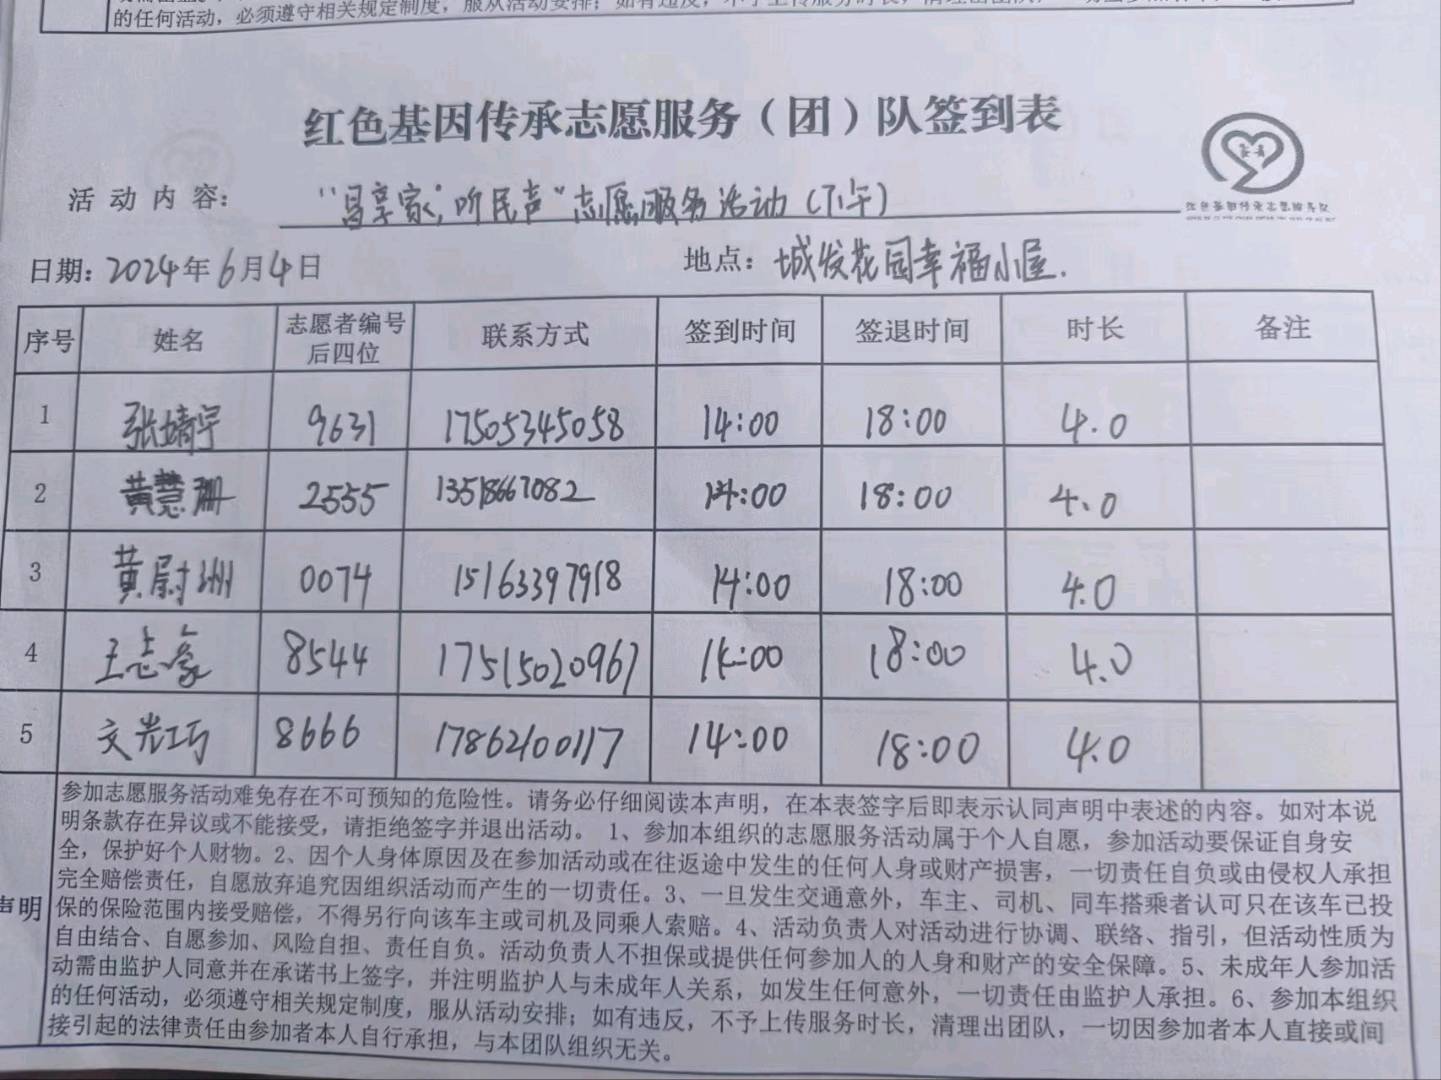 的任何活动，必须遵守相关规定制度，服从活动安排；如有违反，不予上传服务时长，清理出团队，一切因参加
红色基因传承志愿服务（团）队签到表
活动内容：“昌享家，听民声”志愿服务活动（下午）
红色基因传承志愿服务队
日期：2024年6月4日 地点：城发花园幸福小屋.
序号 姓名 志愿者编号后四位 联系方式 签到时间 签退时间 时长 备注
1 张婧宇 9631 17505345058 14:00 18:00 4.0
2 黄慧珊 2555 13518667082 14:00 18:00 4.0
3 黄尉洲 0074 15163397918 14:00 18:00 4.0
4 王志豪 8544 17515020967 14:00 18:00 4.0
5 文光巧 8666 17862100117 14:00 18:00 4.0
声明
参加志愿服务活动难免存在不可预知的危险性。请务必仔细阅读本声明，在本表签字后即表示认同声明中表述的内容。如对本说
明条款存在异议或不能接受，请拒绝签字并退出活动。1、参加本组织的志愿服务活动属于个人自愿，参加活动要保证自身安
全，保护好个人财物。2、因个人身体原因及在参加活动或在往返途中发生的任何人身或财产损害，一切责任自负或由侵权人承担
完全赔偿责任，自愿放弃追究因组织活动而产生的一切责任。3、一旦发生交通意外，车主、司机、同车搭乘者认可只在该车已投
保的保险范围内接受赔偿，不得另行向该车主或司机及同乘人索赔。4、活动负责人对活动进行协调、联络、指引，但活动性质为
自由结合、自愿参加、风险自担、责任自负。活动负责人不担保或提供任何参加人的人身和财产的安全保障。5、未成年人参加活
动需由监护人同意并在承诺书上签字，并注明监护人与未成年人关系，如发生任何意外，一切责任由监护人承担。6、参加本组织
的任何活动，必须遵守相关规定制度，服从活动安排；如有违反，不予上传服务时长，清理出团队，一切因参加者本人直接或间
接引起的法律责任由参加者本人自行承担，与本团队组织无关。